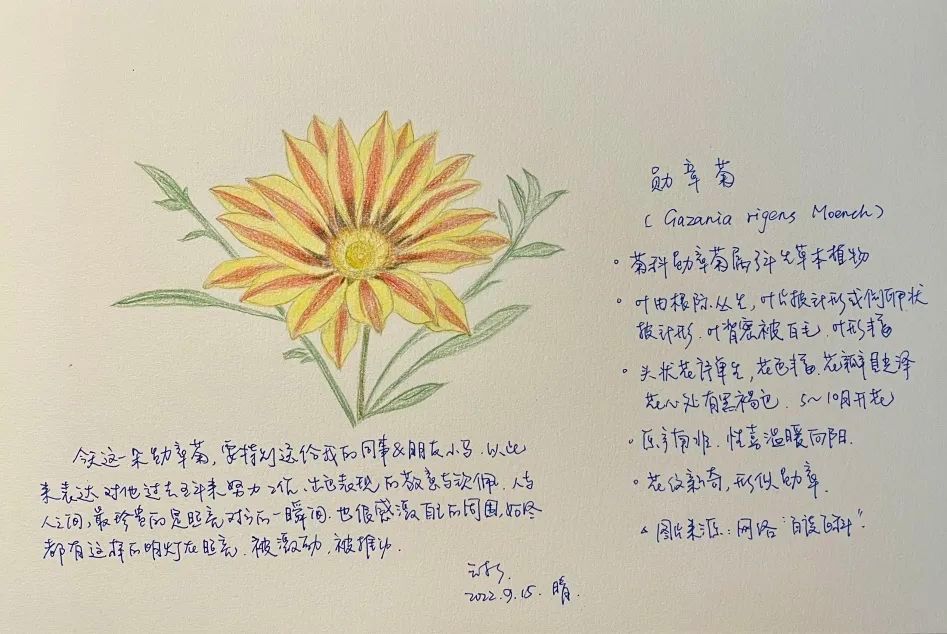 勋章菊
(Gazania rigens Moench)
• 菊科勋章菊属多年生草本植物
• 叶由根际丛生, 叶片披针形或倒卵状
披针形. 叶背密被白毛, 叶形丰富
• 头状花序单生, 花色丰富. 花瓣有光泽
花心处有黑褐色. 5~10月开花
• 原产南非. 性喜温暖向阳.
• 花纹新奇, 形似勋章.
△ 图片来源: 网络 "百度百科".
今天这一朵勋章菊, 要特别送给我的同事&朋友小马. 以此
来表达对他过去五年来努力工作、出色表现的敬意与钦佩. 人与
人之间, 最珍贵的是照亮对方的一瞬间. 也很感激自己的周围, 始终
都有这样的明灯在照亮. 被激励, 被推动.
2022.9.15. 晴.